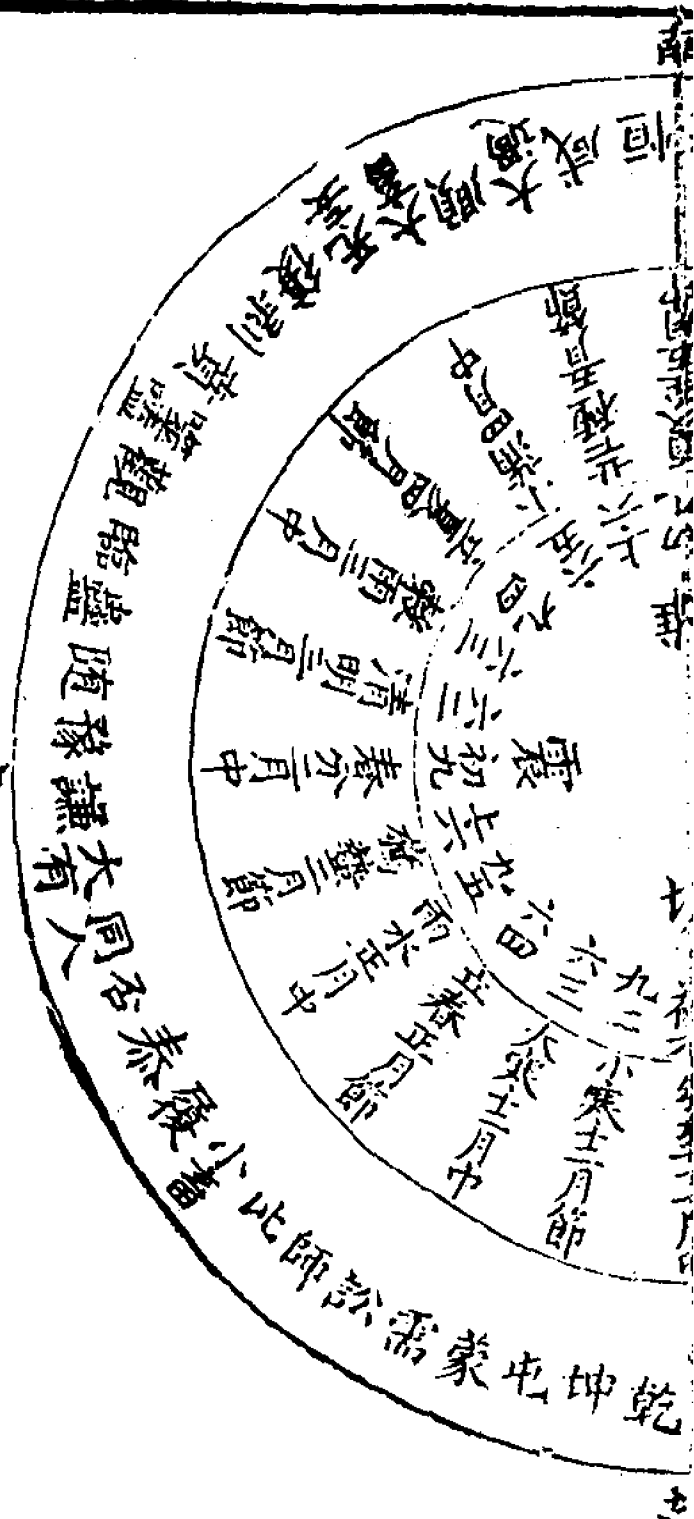 乾坤屯蒙需訟師比小畜履泰否同人大有謙豫隨蠱臨觀噬嗑賁剝復无妄大畜頤大過咸恒
小寒十二月節
大寒十二月中
立春正月節
雨水正月中
驚蟄二月節
春分二月中
清明三月節
穀雨三月中
立夏四月節
小滿四月中
芒種五月節
九二
六三
六四
九五
上六
初九
六二
六三
九四
六五
上六
震